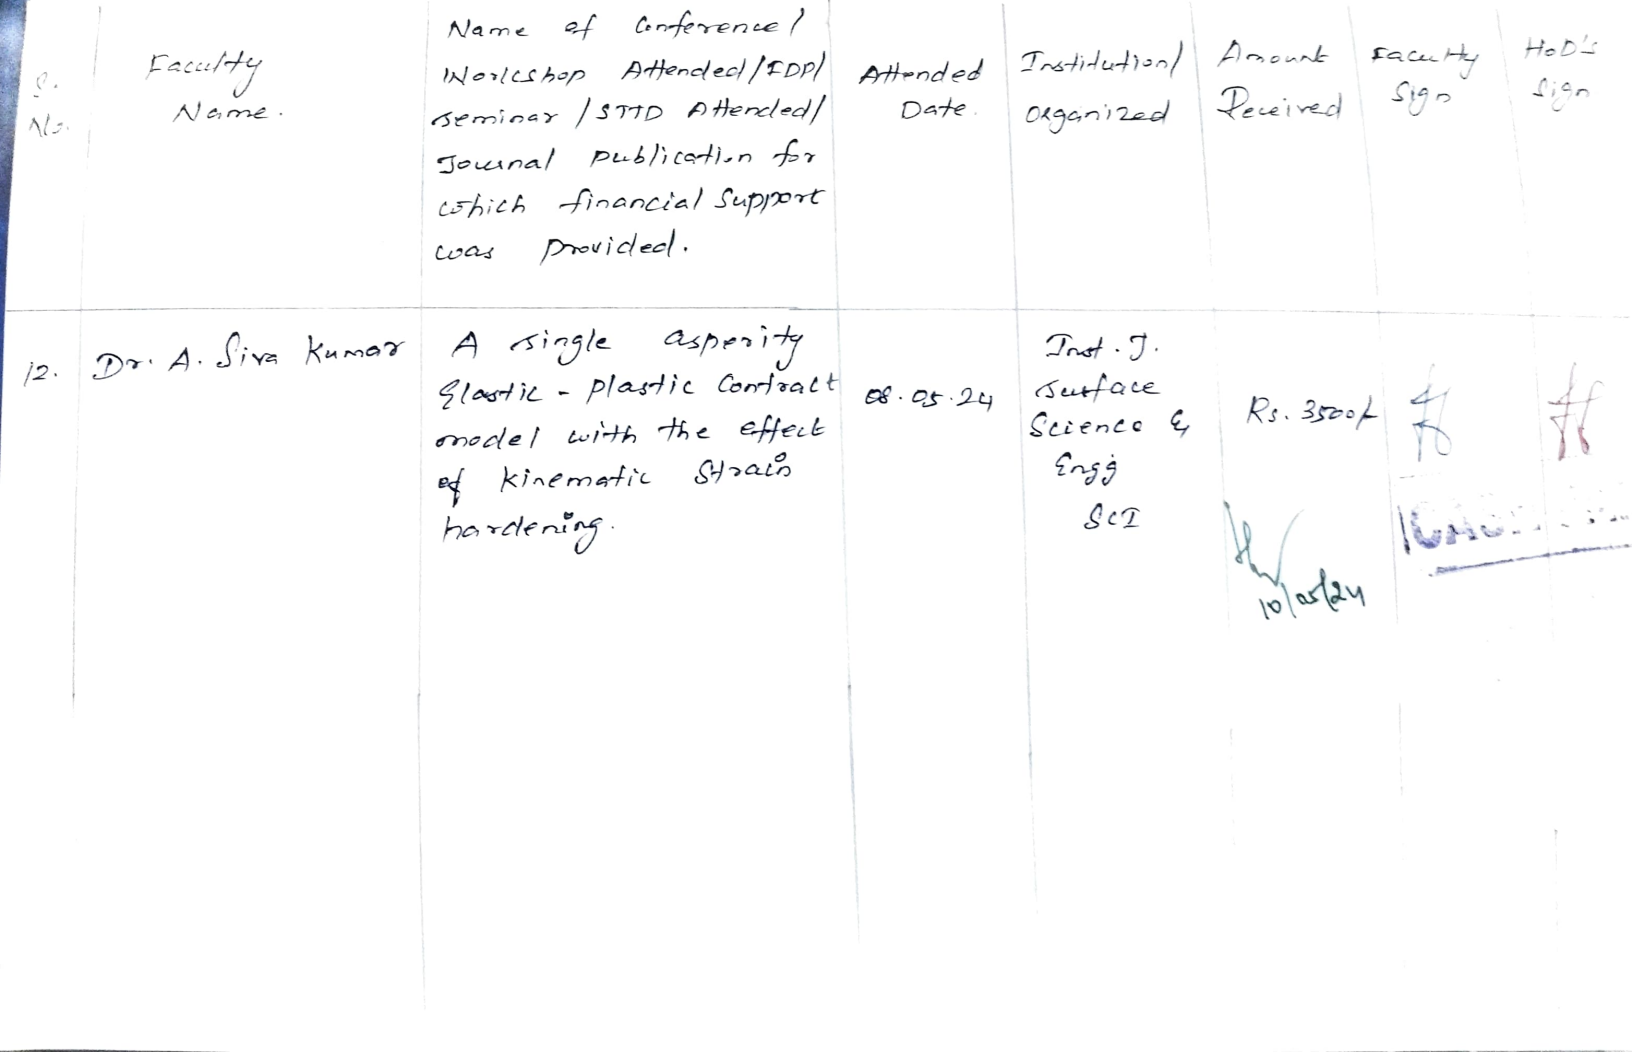 S.
No.
Faculty
Name.
Name of Conference/
Workshop Attended/FDP/
seminar / STTD Attended/
Journal publication for
which financial support
was provided.
Attended
Date.
Institution/
organized
Amount
Received
Faculty
Sign
HoD's
Sign
12.
Dr. A. Siva Kumar
A single asperity
Elastic - plastic Contract
model with the effect
of kinematic strain
hardening.
08.05.24
Inst. J.
Surface
Science &
Engg
SCI
Rs. 3500/-
10/05/24